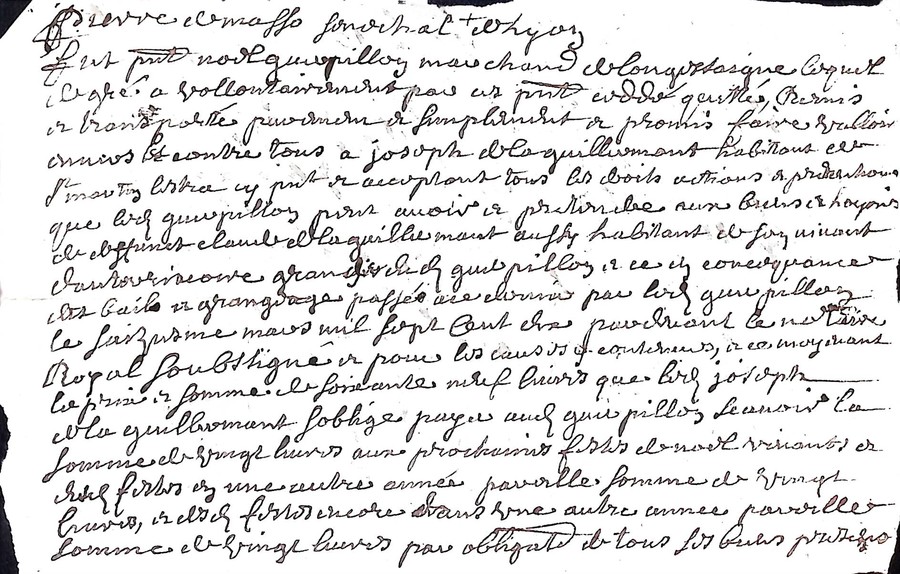 Pierre de masso senechal de lyon
fut pnt noel guepillon marchand de longessaigne lequel
de gré a vollontairement par ces pnt ceddé quitté, Remis
et transporté purement et simplement et promis faire valloir
envers et contre tous a joseph de la guillermont habitant de
St martin lestra cy pnt et acceptant tous les droits actions et pretentions
que led guepillon peut avoir et pretendre aux biens et hoyries
de deffunct claude de la guillermont aussy habitant de son vivant
dant grander dud guepillon et ce en consequance
des bail et grangeage passée par led guepillon
le seizieme mars mil sept Cent dix pardevant le notaire
Royal soubsigné et pour les causes y contenues, et ce moyenant
le prix et somme de soixante neuf livres que led joseph
de la guillermont soblige payer aud guepillon scavoir la
somme de vingt livres aux prochaines festes de noel venants et
esd festes en une autre année pareille somme de vingt
livres, et esd festes encore dans une autre annee pareille
somme de vingt livres par obligat de tous ses biens presens